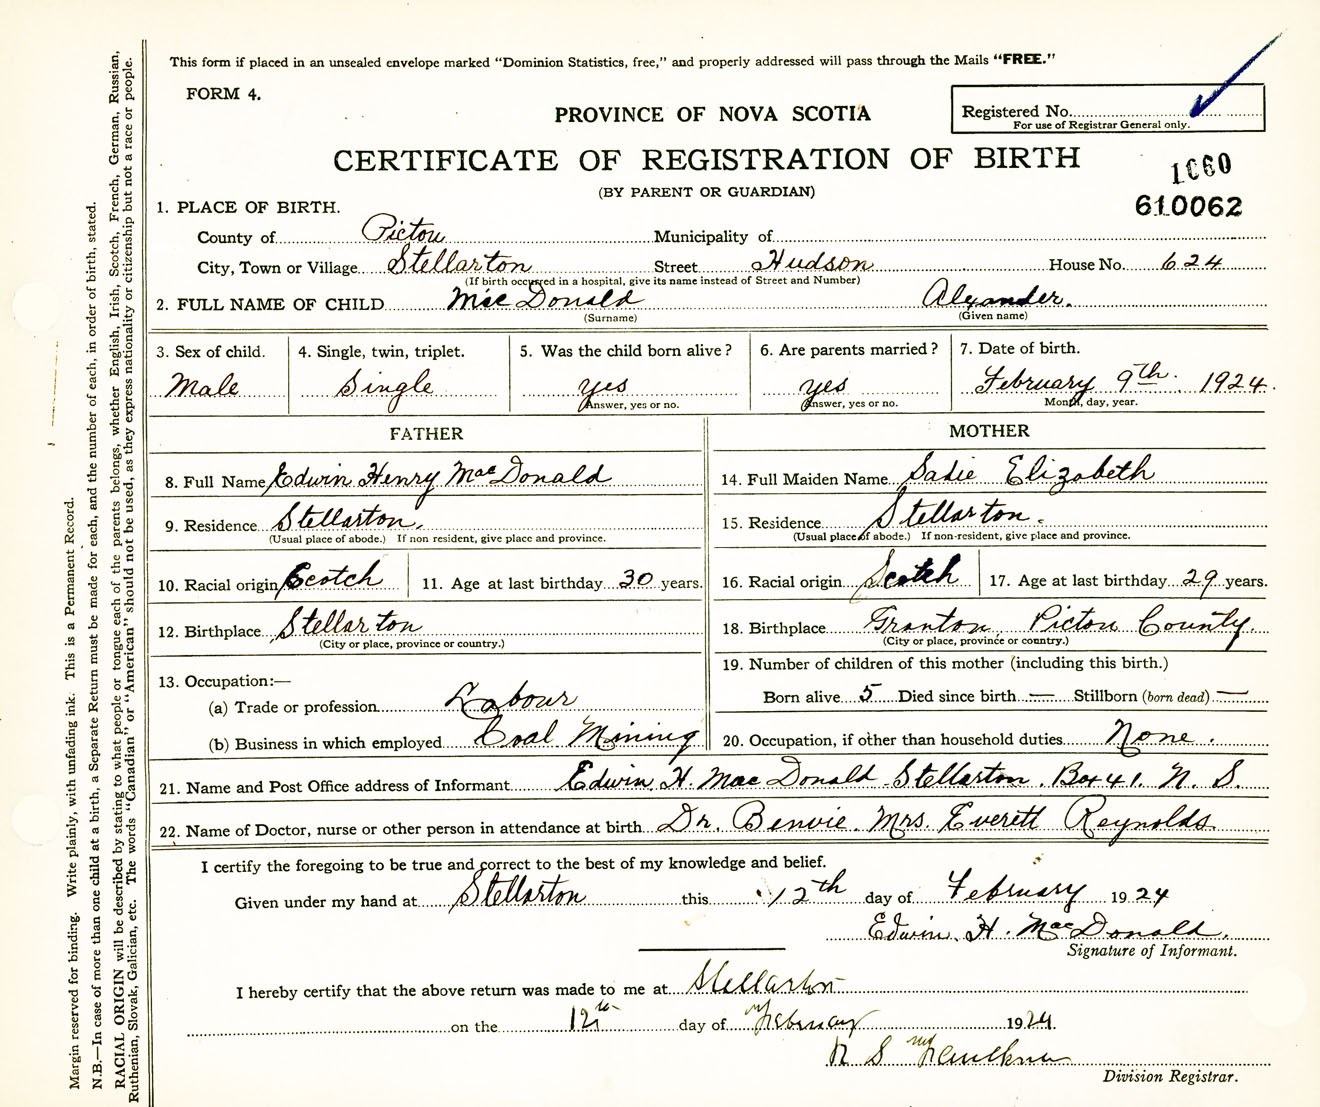 This form if placed in an unsealed envelope marked "Dominion Statistics, free," and properly addressed will pass through the Mails "FREE."
FORM 4.
PROVINCE OF NOVA SCOTIA
Registered No.
For use of Registrar General only.
CERTIFICATE OF REGISTRATION OF BIRTH
(BY PARENT OR GUARDIAN)
1060
610062
1. PLACE OF BIRTH.
County of Pictou Municipality of
City, Town or Village Stellarton Street Hudson House No. 624
(If birth occurred in a hospital, give its name instead of Street and Number)
2. FULL NAME OF CHILD MacDonald Alexander.
(Surname) (Given name)
3. Sex of child. 4. Single, twin, triplet. 5. Was the child born alive? 6. Are parents married? 7. Date of birth.
Male Single yes yes February 9th 1924.
Answer, yes or no. Answer, yes or no. Month, day, year.
FATHER
8. Full Name Edwin Henry MacDonald
9. Residence Stellarton.
(Usual place of abode.) If non resident, give place and province.
10. Racial origin Scotch 11. Age at last birthday 30 years.
12. Birthplace Stellarton
(City or place, province or country.)
13. Occupation:—
(a) Trade or profession Labour
(b) Business in which employed Coal Mining
MOTHER
14. Full Maiden Name Sadie Elizabeth
15. Residence Stellarton.
(Usual place of abode.) If non-resident, give place and province.
16. Racial origin Scotch 17. Age at last birthday 29 years.
18. Birthplace Granton, Pictou County.
(City or place, province or country.)
19. Number of children of this mother (including this birth.)
Born alive 5 Died since birth — Stillborn (born dead) —
20. Occupation, if other than household duties None.
21. Name and Post Office address of Informant Edwin H. MacDonald Stellarton. Box 41. N. S.
22. Name of Doctor, nurse or other person in attendance at birth Dr. Benvie. Mrs. Everett Reynolds
I certify the foregoing to be true and correct to the best of my knowledge and belief.
Given under my hand at Stellarton this 12th day of February 1924
Edwin. H. MacDonald.
Signature of Informant.
I hereby certify that the above return was made to me at Stellarton
on the 12th day of February 1924.
S Faulkner
Division Registrar.
Margin reserved for binding. Write plainly, with unfading ink. This is a Permanent Record.
N.B.—In case of more than one child at a birth, a Separate Return must be made for each, and the number of each, in order of birth, stated.
RACIAL ORIGIN will be described by stating to what people or tongue each of the parents belongs, whether English, Irish, Scotch, French, German, Russian,
Ruthenian, Slovak, Galician, etc. The words "Canadian" or "American" should not be used, as they express nationality or citizenship but not a race or people.